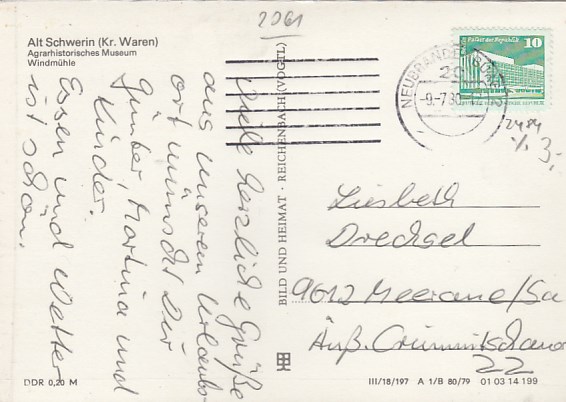 2061
Alt Schwerin (Kr. Waren)
Agrarhistorisches Museum
Windmühle
Viele herzliche Grüße
aus unserem Urlaubs-
ort wünscht Dir
Günter, Martina und
Kinder.
Essen und Wetter
ist schön.
DDR 0,20 M
BILD UND HEIMAT · REICHENBACH (VOGTL)
Palast der Republik
10
NEUBRANDENBURG
20
-9.-7.80
2484
3,-
Liesbeth
Drechsel
9612 Meerane/Sa
Äuß. Crimmitschauer
22
III/18/197 A 1/B 80/79 01 03 14 199